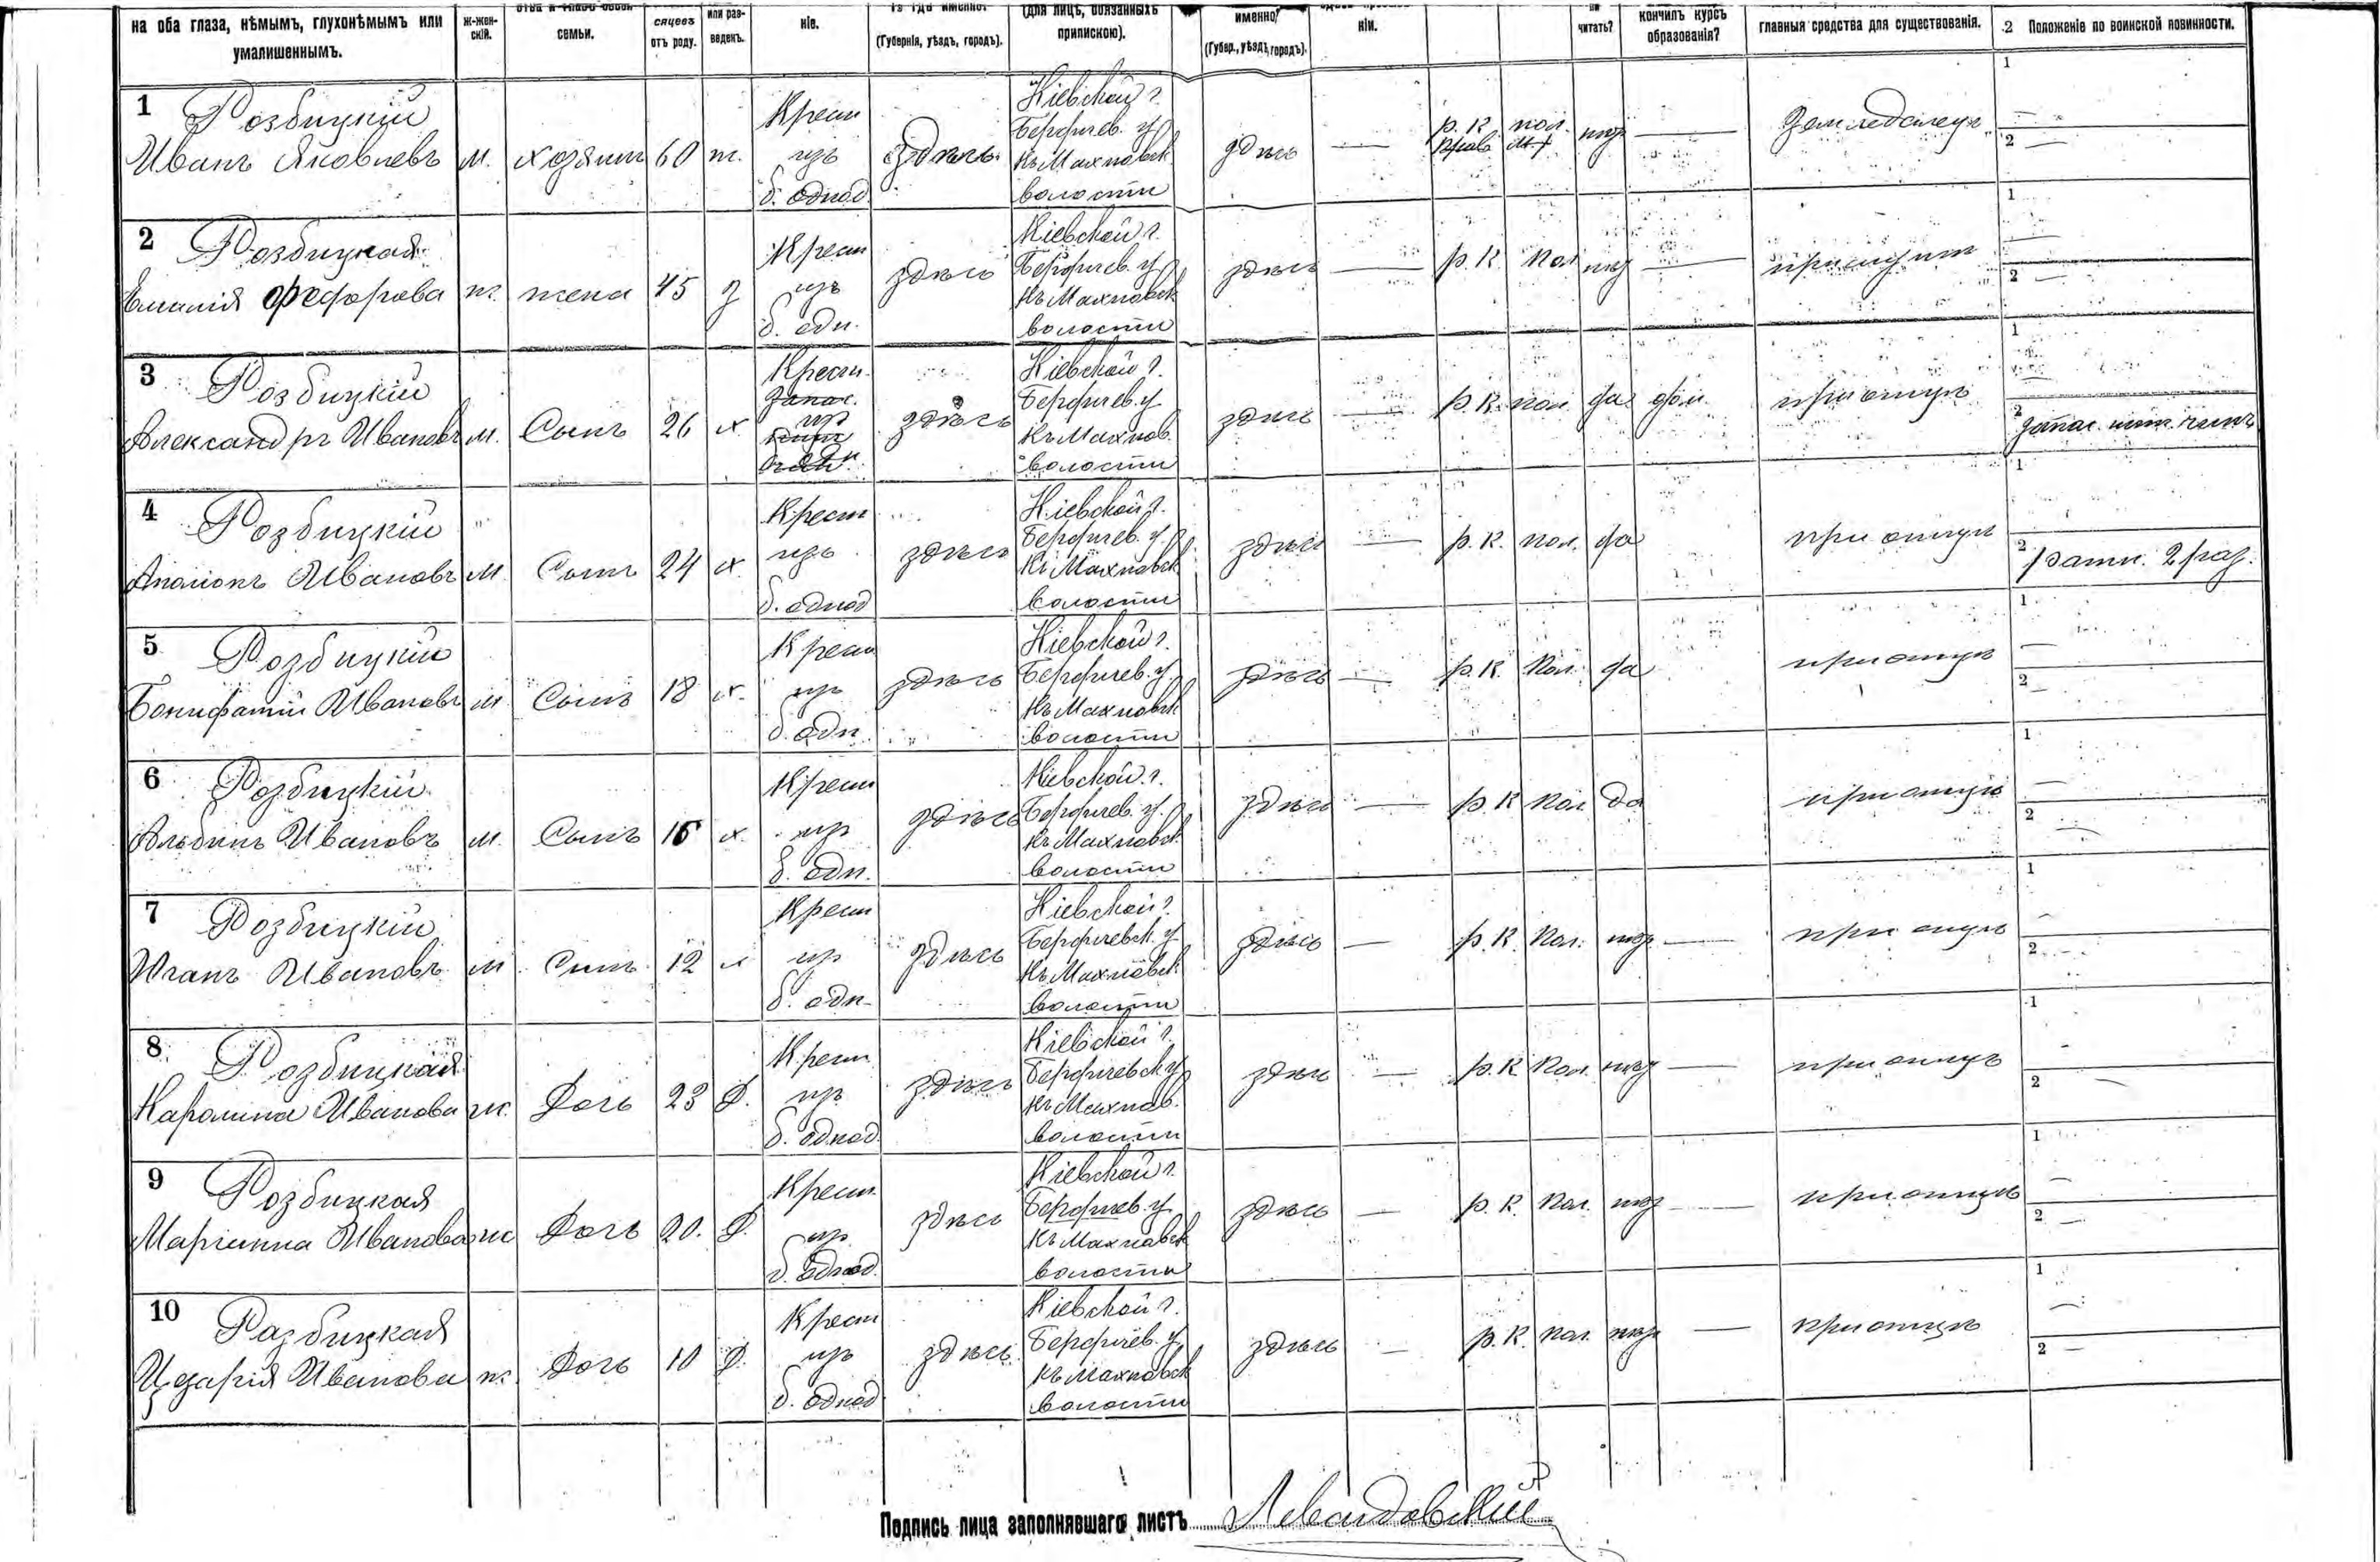 на оба глаза, нѣмымъ, глухонѣмымъ или умалишеннымъ.
ж-жен-скій.
семьи.
сяцевъ отъ роду.
или раз-веденъ.
ніе.
(Губернія, уѣздъ, городъ).
(для лицъ, обязанныхъ припискою).
именно?
(Губер., уѣздъ, городъ).
ніи.
читать?
кончилъ курсъ образованія?
главныя средства для существованія.
2 Положеніе по воинской повинности.
1 Розбицкій
Иванъ Яковлевъ м. хозяинъ 60 ж. Крест изъ б. однод здѣсь Кіевской г. Бердичев. у. къ Махновск волости здѣсь — р. к. пол. — Земледѣлецъ 1 — 2 —
2 Розбицкая
Емилія Федорова ж. жена 45 з Крест изъ б. одн. здѣсь Кіевской г. Бердичев. у. къ Махновск волости здѣсь — р. к. пол — 1 — 2 —
3 Розбицкій
Александръ Ивановъ м. Сынъ 26 х. Крест. здѣсь Кіевской г. Бердичев. у. къ Махнов. волости здѣсь — р. к. пол. да дом. при отцѣ 1 2 запас.
4 Розбицкій
Ивановъ м. Сынъ 24 х. Крест изъ б. однод здѣсь Кіевской г. Бердичев. у. къ Махновск волости здѣсь — р. к. пол. да при отцѣ 1 2 ратн. 2 раз.
5 Розбицкій
Бонифатій Ивановъ м. Сынъ 18 х. Крест изъ б. одн. здѣсь Кіевской г. Бердичев. у. къ Махновск волости здѣсь — р. к. пол. да при отцѣ 1 — 2 —
6 Розбицкій
Альбинъ Ивановъ м. Сынъ х. Крест изъ б. одн. здѣсь Кіевской г. Бердичев. у. къ Махновск. волости здѣсь — р. к. пол. да при отцѣ 1 — 2 —
7 Розбицкій
Иванъ Ивановъ м. Сынъ 12 х Крест изъ б. одн. здѣсь Кіевской г. Бердичевск. у. къ Махновск волости здѣсь — р. к. пол. — при отцѣ 1 — 2 —
8 Розбицкая
Каролина Иванова ж. Дочь 23 д. Крест изъ б. однод. здѣсь Кіевской г. Бердичевск у. къ Махнов. волости здѣсь — р. к. пол. — при отцѣ 1 — 2 —
9 Розбицкая
Маріанна Иванова ж Дочь 20. д. Крест. изъ б. однод. здѣсь Кіевской г. Бердичев. у. къ Махновск волости здѣсь — р. к. пол. — при отцѣ 1 — 2 —
10 Разбицкая
Цезарія Иванова ж. Дочь 10 д. Крест изъ б. однод здѣсь Кіевской г. Бердичев. у. къ Махновск волости здѣсь — р. к. пол. — при отцѣ 1 — 2 —
Подпись лица заполнявшаго листъ Левандовскій